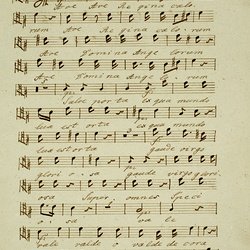 Ave Ave Re gina calo
rum Ave Re gina calo rum
Ave Domina Ange lorum
Ave Domina Ange lo rum
Salve porta ex qua mundo
lux est orta ex qua mundo
lux est orta gaude virgo
glori o sa gaude virgo glori
osa Super omnes speci
o sa va le
vale valde o valde de cora